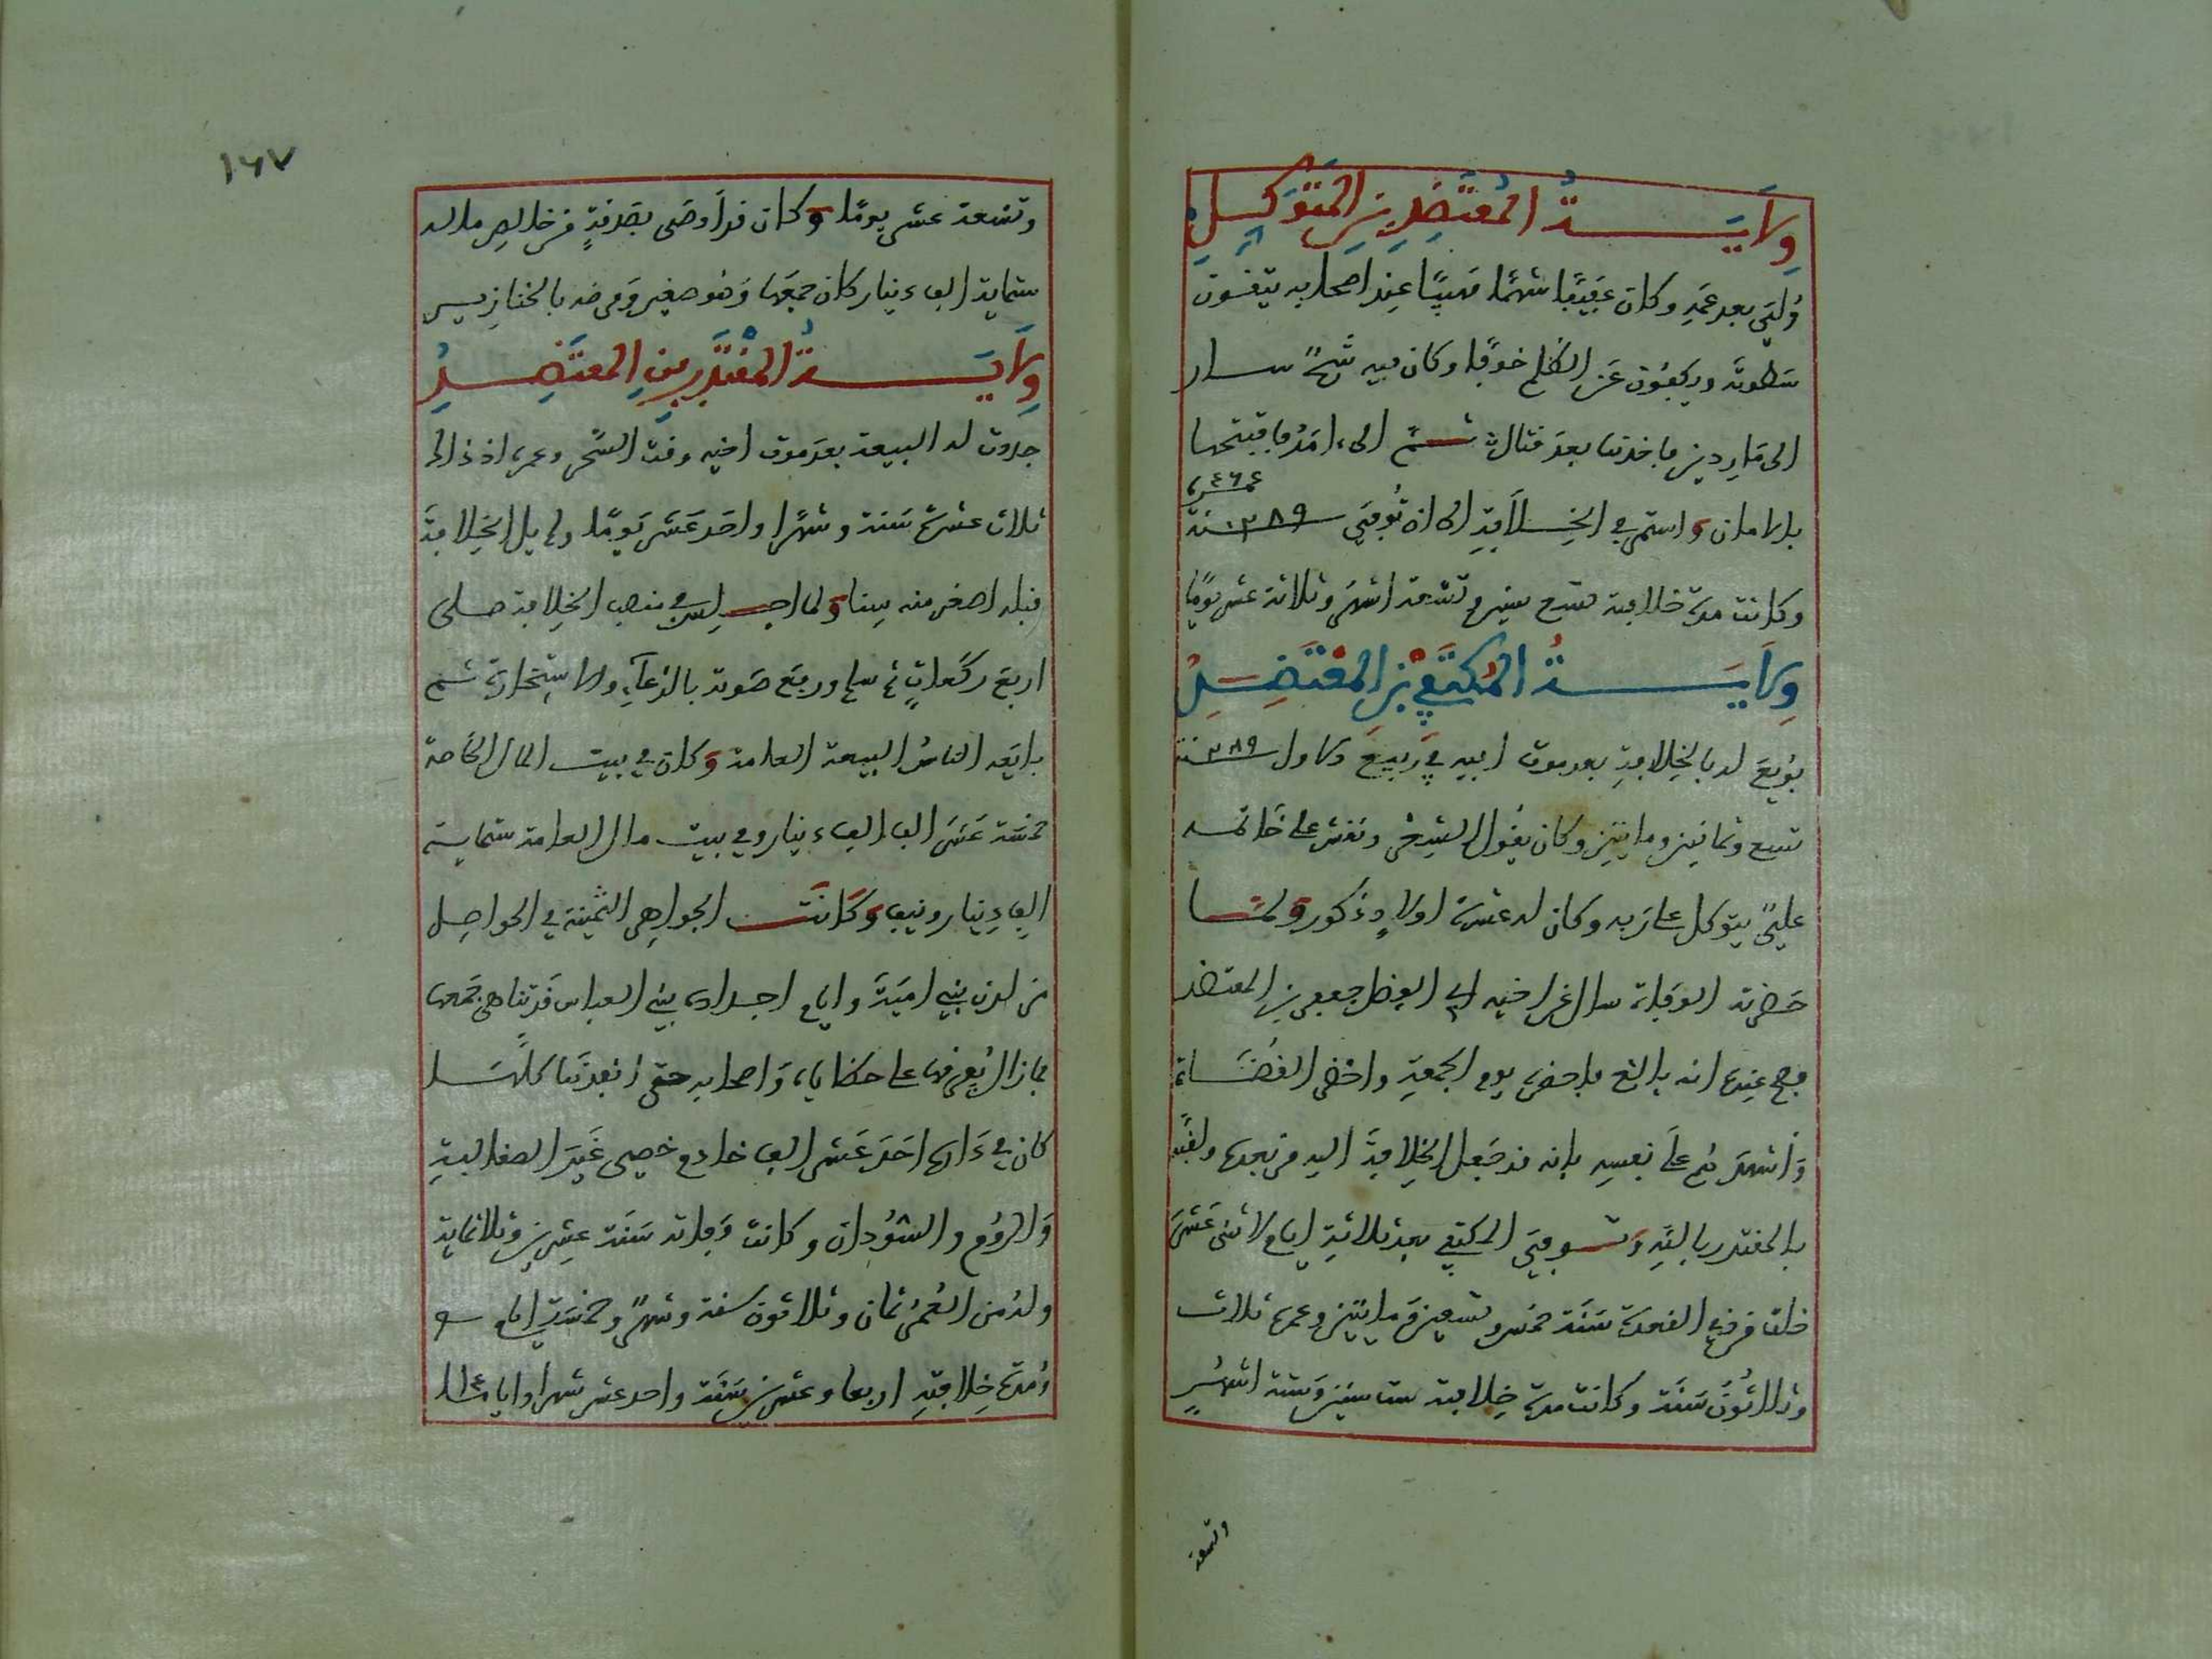 ولاية المعتضد بن المتوكل
ولي بعد عمه وكان عفيفا شهما مهيبا عند اصحابه يتقون
سطوته ويكفون عن الظلم خوفا وكان فيه شح سار
الى ماردين فاخذتها بعد قتال ثم الى امد ففتحها
بالامان واستمر في الخلافة الى ان توفي سنة ٢٨٩
وكانت مدة خلافته تسع سنين وتسعة اشهر وثلاثة عشر يوما
ولاية المكتفي بن المعتضد
بويع له بالخلافة بعد موت ابيه في ربيع الاول سنة ٢٨٩
تسع وثمانين ومايتين وكان يقول الشعر ونقش على خاتمه
علي يتوكل على ربه وكان له عشرة اولاد ذكور ولما
حضرته الوفاة سال عن اخيه ابي الفضل جعفر بن المعتضد
فصح عنده انه بالغ فاحضره يوم الجمعة واحضر القضاة
واشهدهم على نفسه بانه قد جعل الخلافة اليه من بعده ولقبه
بالمقتدر بالله وتوفي المكتفي بعد ثلاثة ايام لاثنى عشر
خلت من ذي القعدة سنة خمس وتسعين ومايتين وعمره ثلاث
وثلاثون سنة وكانت مدة خلافته ست سنين وستة اشهر
وتسعة
١٦٧
وتسعة عشر يوما وكان قد اوصى بصدقة من خالص ماله
ستماية الف دينار كان جمعها وهو صغير ومرضه بالخنازير
ولاية المقتدر بن المعتضد
جددت له البيعة بعد موت اخيه وقت السحر وعمره اذ ذاك
ثلاث عشرة سنة وشهرا واحد عشر يوما ولم يل الخلافة
قبله اصغر منه سنا ولما اجلس في منصب الخلافة صلى
اربع ركعات ثم سلم ورفع صوته بالدعاء والاستخارة ثم
بايعه الناس البيعة العامة وكان في بيت المال الخاصة
خمسة عشر الف الف دينار وفي بيت مال العامة ستماية
الف دينار ونيف وكانت الجواهر الثمينة في الحواصل
من لدن بني امية وايام اجداده بني العباس قد تناهى جمعها
فما زال يفرقها على حظاياه واصحابه حتى انفدها كلها
كان في داره احد عشر الف خادم خصي غير الصقالبة
والروم والسودان وكانت وفاته سنة عشرين وثلاثماية
وله من العمر ثمان وثلاثون سنة وشهر وخمسة ايام
ومدة خلافته اربعا وعشرين سنة واحد عشر شهرا واياما